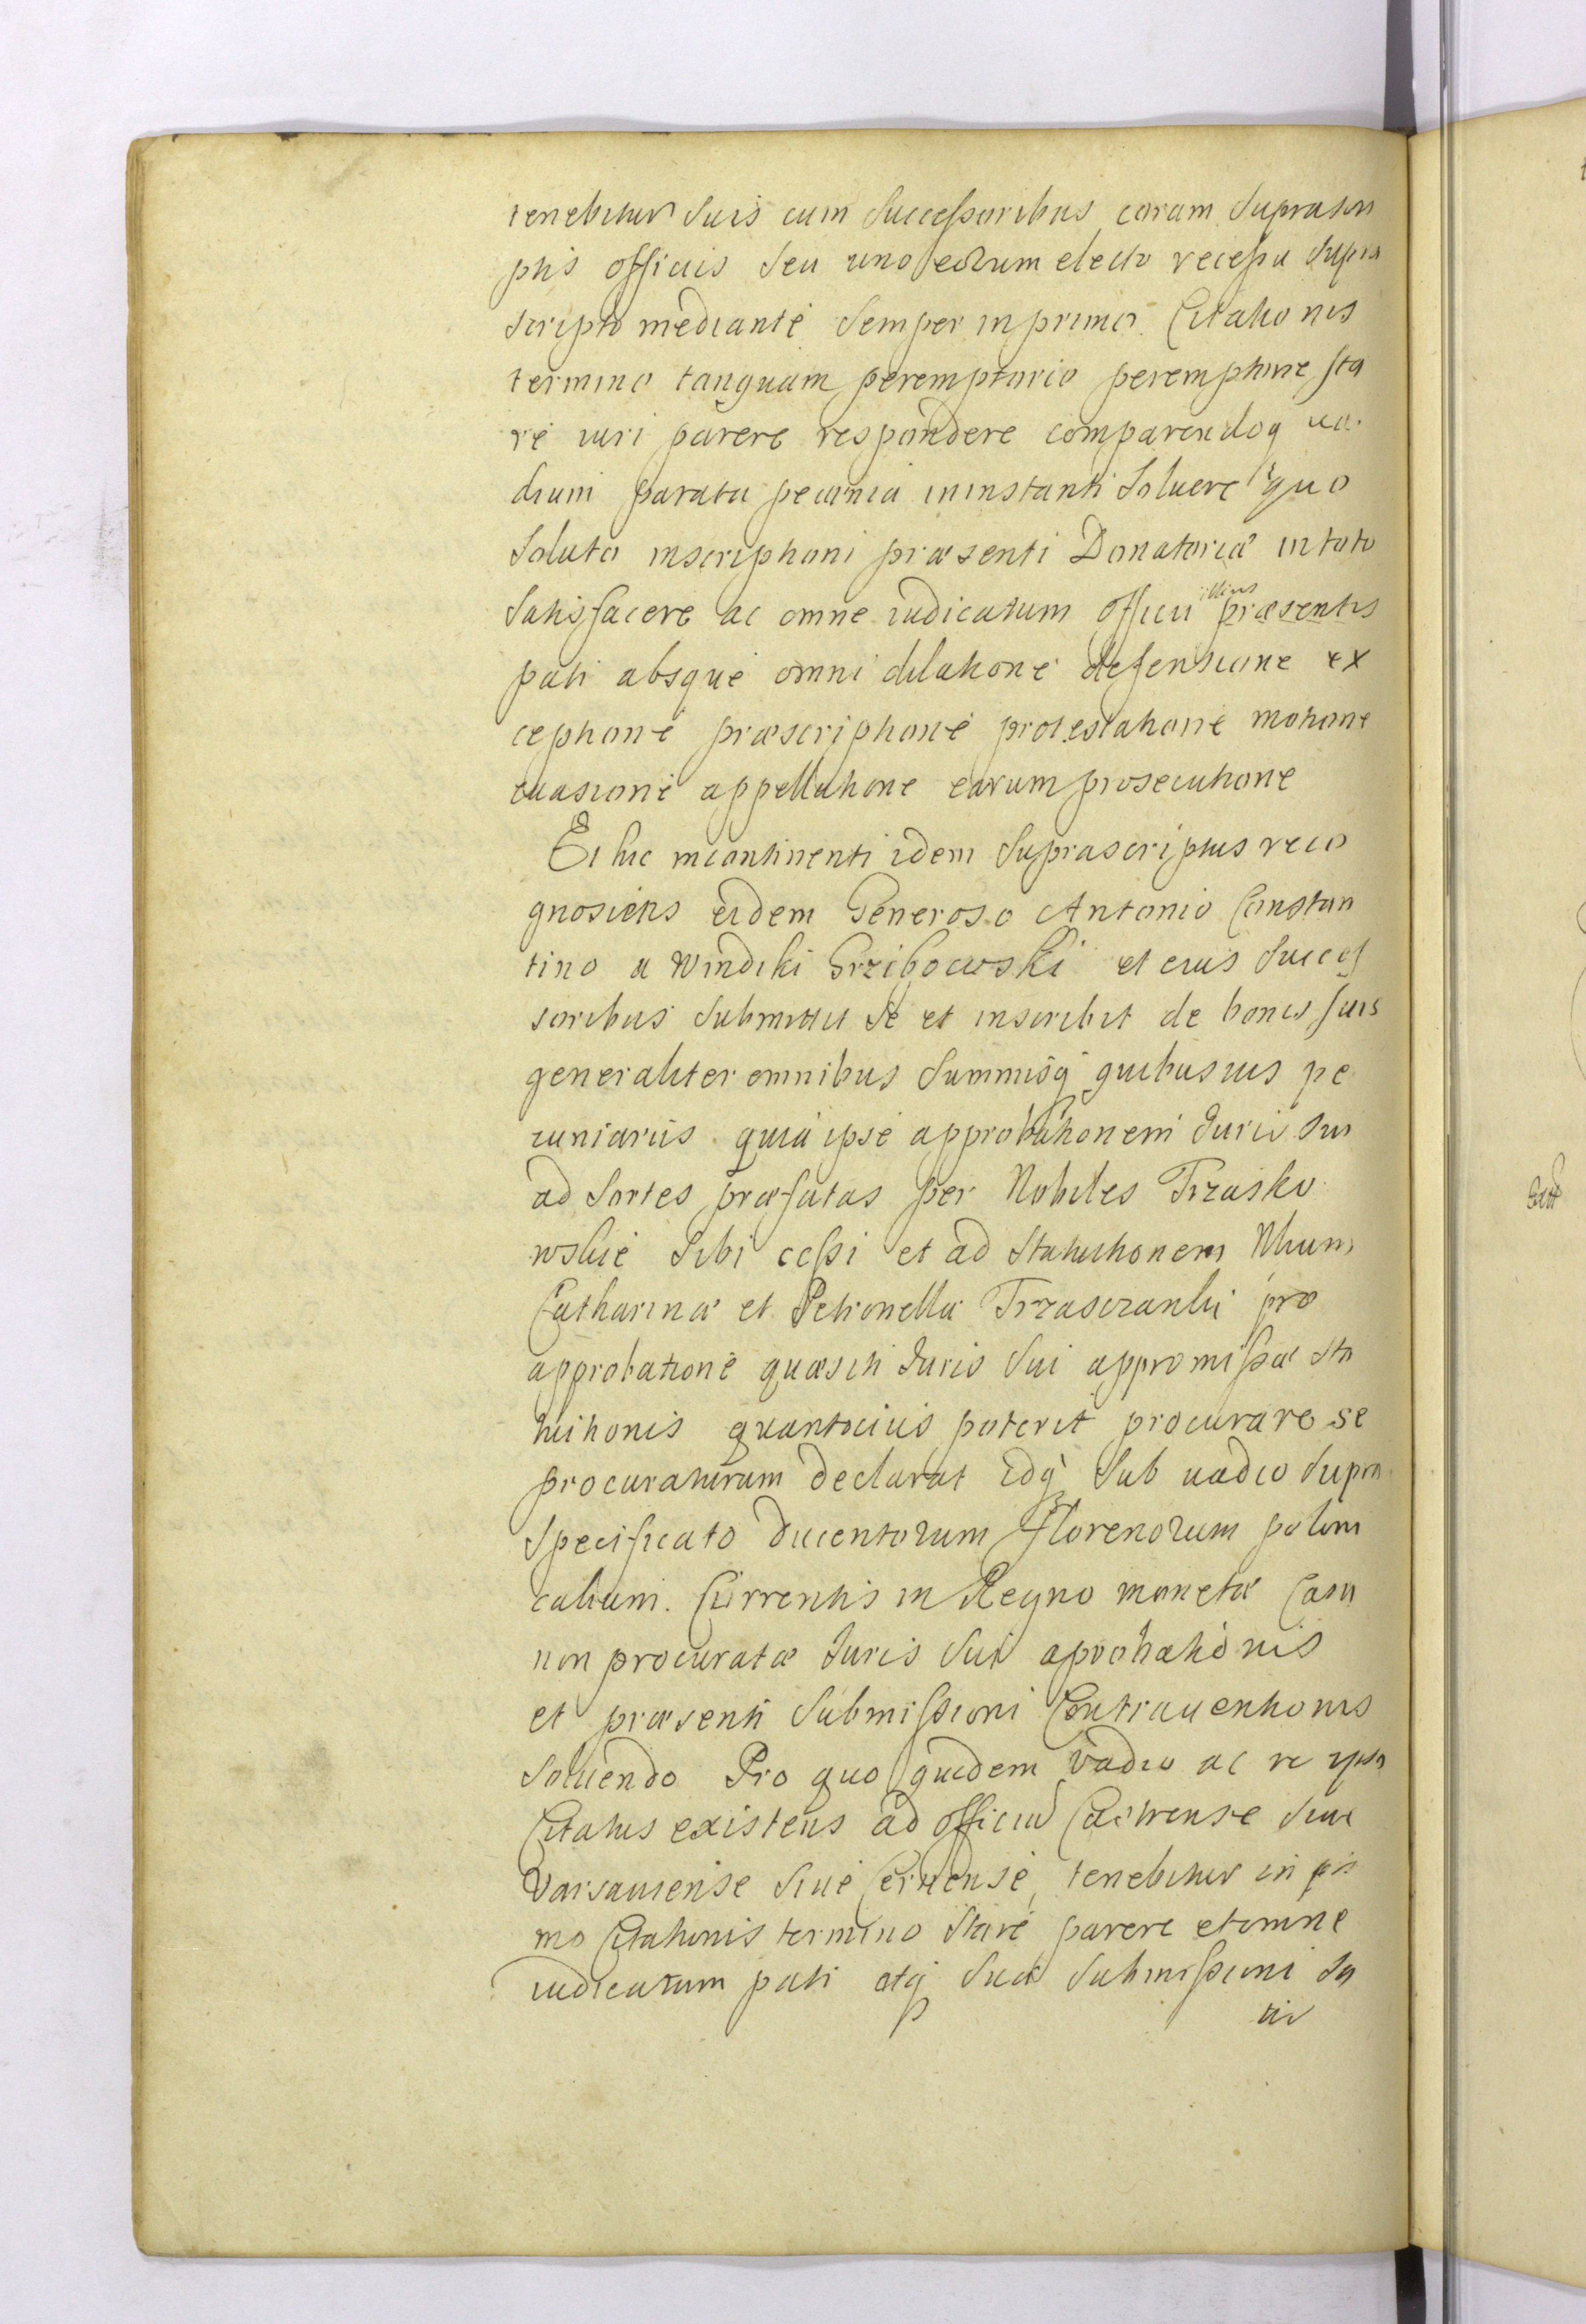 tenebitur suis cum successoribus coram suprascri
ptis officiis seu uno eorum electo recessu supra
scripto mediante semper in primo Citationis
termino tanquam peremptorio peremptorie sta
re iuri parere respondere comparendoq̃ va
dium parata pecunia in instanti soluere quo
soluto inscriptioni præsenti Donatoriæ in toto
satisfacere ac omne iudicatum officii illius præsentis
pati absque omni dilatione defensione ex
ceptione præscriptione protestatione motione
euasione appellatione earum prosecutione
Et hic incontinenti idem suprascriptus reco
gnoscens eidem Generoso Antonio Constan
tino a Windiki Grzibowski et eius succes
soribus submittit se et inscribit de bonis suis
generaliter omnibus summisq̃ quibusuis pe
cuniariis quia ipse approbationem Juris sui
ad sortes præfatas per Nobiles Trzasko
wskie sibi cessi et ad statuitionem Nlium
Catharinæ et Petronellæ Trzasczanki pro
approbatione quæsiti Juris sui appromissæ sta
tuitionis quantocius poterit procurare se
procuraturum declarat idq̃ sub uadio supra
specificato ducentorum florenorum poloni
calium. Currentis in Regno monetæ Casu
non procuratæ Juris sui aprobationis
et præsenti submissioni Contrauentionis
soluendo Pro quo quidem vadio ac re ipsa
Citatus existens ad officiũ Castrense siue
Varsauiense siue Cernense, tenebitur in pri
mo Citationis termino stare parere et omne
iudicatum pati atq̃ suæ submissioni sa
tis
Eidẽ